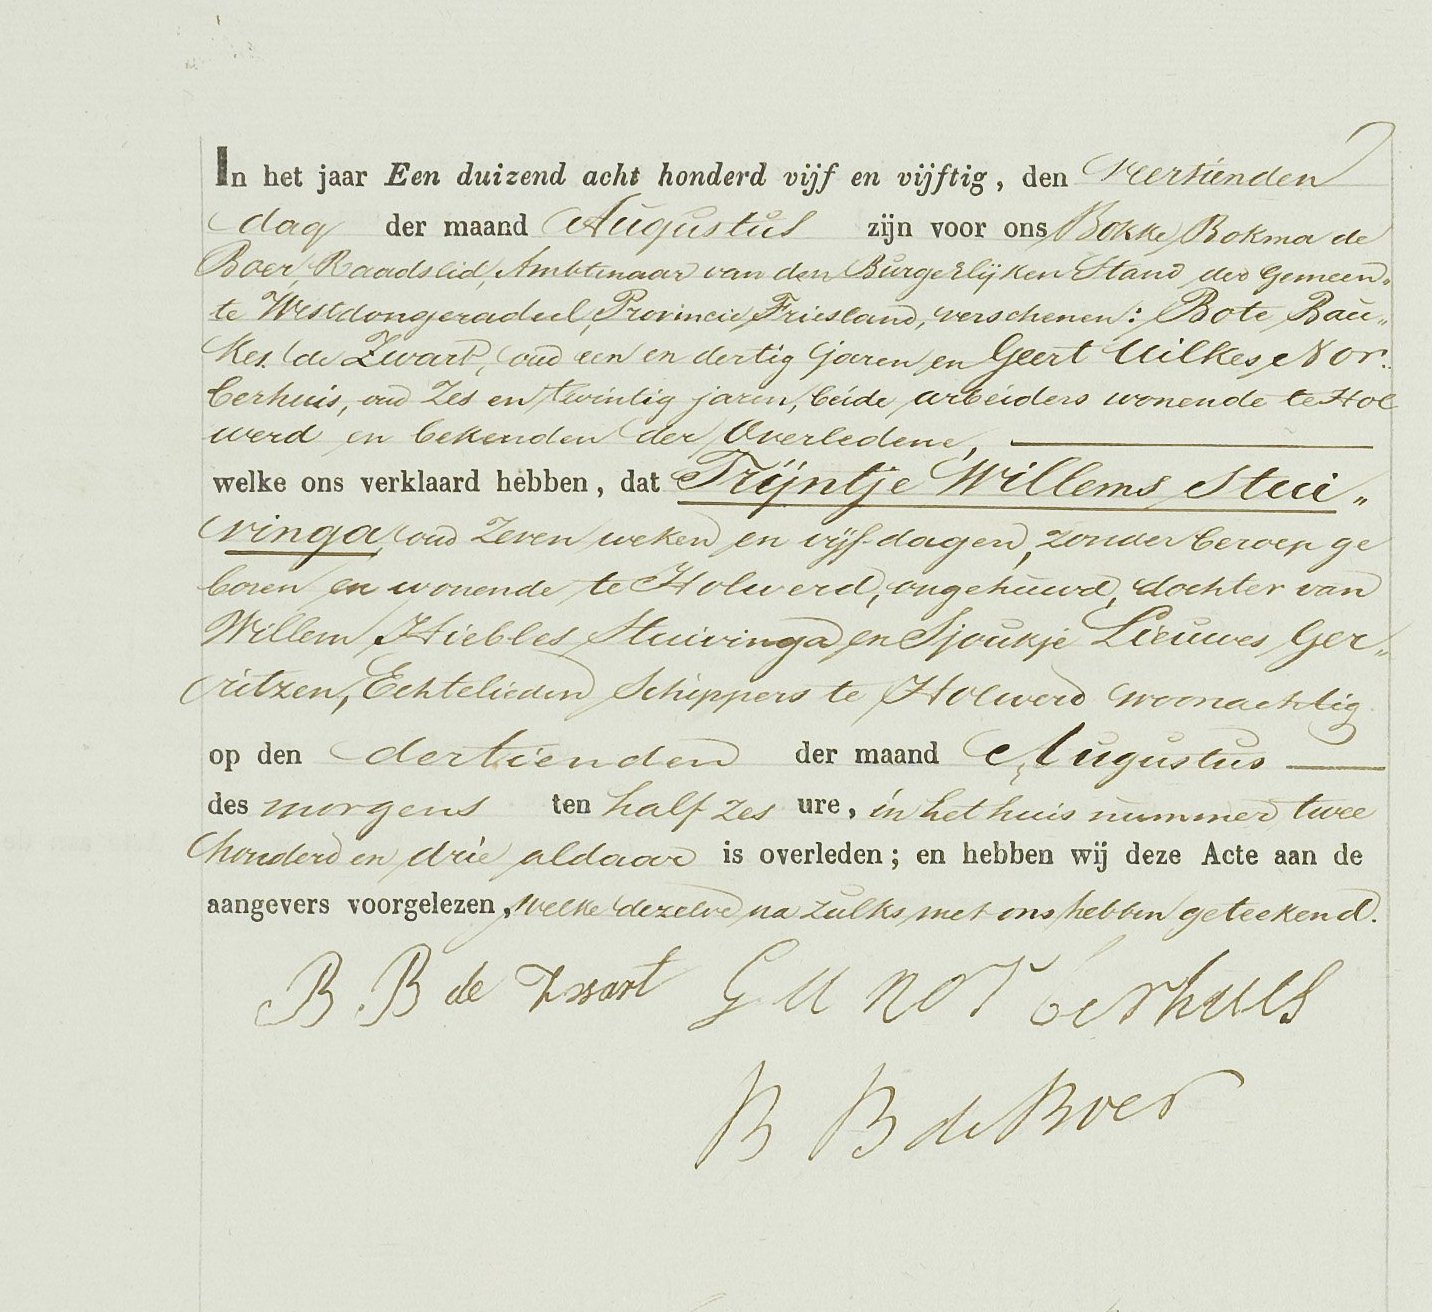 In het jaar Een duizend acht honderd vijf en vijftig, den veertienden
dag der maand Augustus zijn voor ons Bokke Bokma de
Boer, Raadslid, Ambtenaar van den Burgerlijken Stand der Gemeen„
te Westdongeradeel, Provincie Friesland, verschenen: Bote Bau„
kes de Zwart, oud een en dertig jaren en Geert Uilkes Nor„
berhuis, oud zes en twintig jaren, beide arbeiders wonende te Hol
werd en bekenden der Overledene,
welke ons verklaard hebben, dat Trijntje Willems Stui„
vinga oud zeven weken en vijf dagen, zonder beroep ge
boren en wonende te Holwerd, ongehuwd, dochter van
Willem Hiebles Stuivinga en Sjoukje Lieuwes Ger„
ritzen, Echtelieden Schippers te Holwerd woonachtig
op den dertienden der maand Augustus
des morgens ten half zes ure, in het huis nummer twee
honderd en drie aldaar is overleden; en hebben wij deze Acte aan de
aangevers voorgelezen, welke dezelve na zulks met ons hebben geteekend.
B. B de Zwart G U Norberhuis
B B de Boer